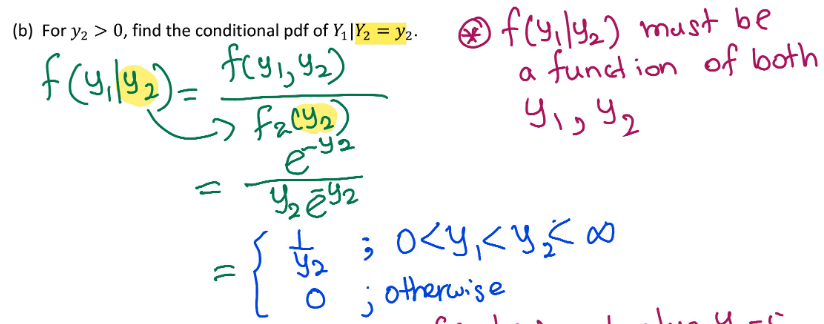 (b) For y₂ > 0, find the conditional pdf of Y₁|Y₂ = y₂.
f(y₁|y₂) = f(y₁,y₂) / f₂(y₂)
= e^{-y₂} / y₂e^{-y₂}
= { 1/y₂ ; 0<y₁<y₂<∞
0 ; otherwise
⊛ f(y₁|y₂) must be
a function of both
y₁, y₂